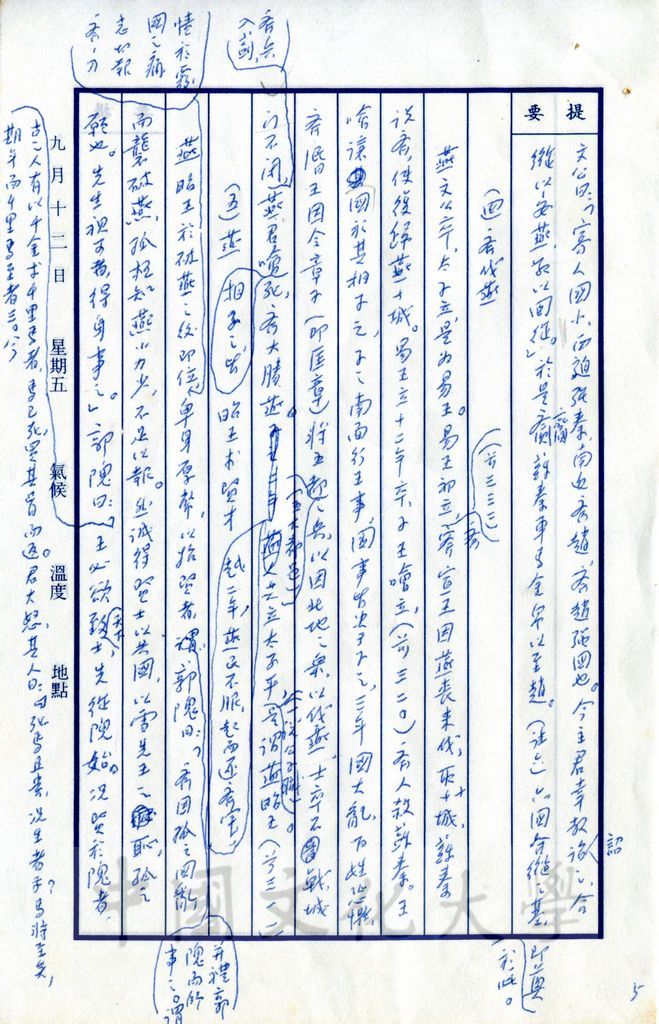 提要
文公曰:「寡人國小,西迫強秦,南近齊趙,齊趙強國也。今主君幸教詔之,合
從以安燕,敬以國從。」於是齎蘇秦車馬金帛以至趙。(註六)六國合縱之基
即奠
於此。
(四)齊伐燕
(前三三三)
燕文公卒,太子立,是為易王。易王初立,齊宣王因燕喪來伐,取十城,蘇秦
說齊,使復歸燕十城。易王立十二年卒,子王噲立,(前三二〇)齊人殺蘇秦。王
噲讓國於其相子之,子之南面行王事,國事皆決子之,三年國大亂,百姓恐懼,
齊湣王因令章子(即匡章)將五都之兵,(五大都邑)以因北地之眾,以伐燕,士卒不戰,城
門不閉,
齊兵
入薊,
燕君噲死,齊大勝燕。
相子之亡
越二年,燕又不服,起而逐齊軍,
燕人共立太子平(一說公子職)。是謂燕昭王(前三一一)
(五)燕昭王求賢才
燕昭王於破燕之後即位,卑身厚幣,以招賢者,謂郭隗曰:「齊因孤之國亂
而襲破燕,孤極知燕小力少,不足以報。然誠得賢士以共國,以雪先王之恥,孤之
願也。先生視可者,得身事之。」郭隗曰:「王必欲致天下士,先從隗始。況賢於隗者,
情於
國之
志切報
齊,乃
并禮郭
隗而師
事之。謂
古之人有以千金求千里馬者,馬已死,買其首而返。君大怒,其人曰:死馬且買,況生者乎?馬將至矣,
期年而千里馬至者三。」
九月十二日 星期五 氣候 溫度 地點
中國文化大學
5